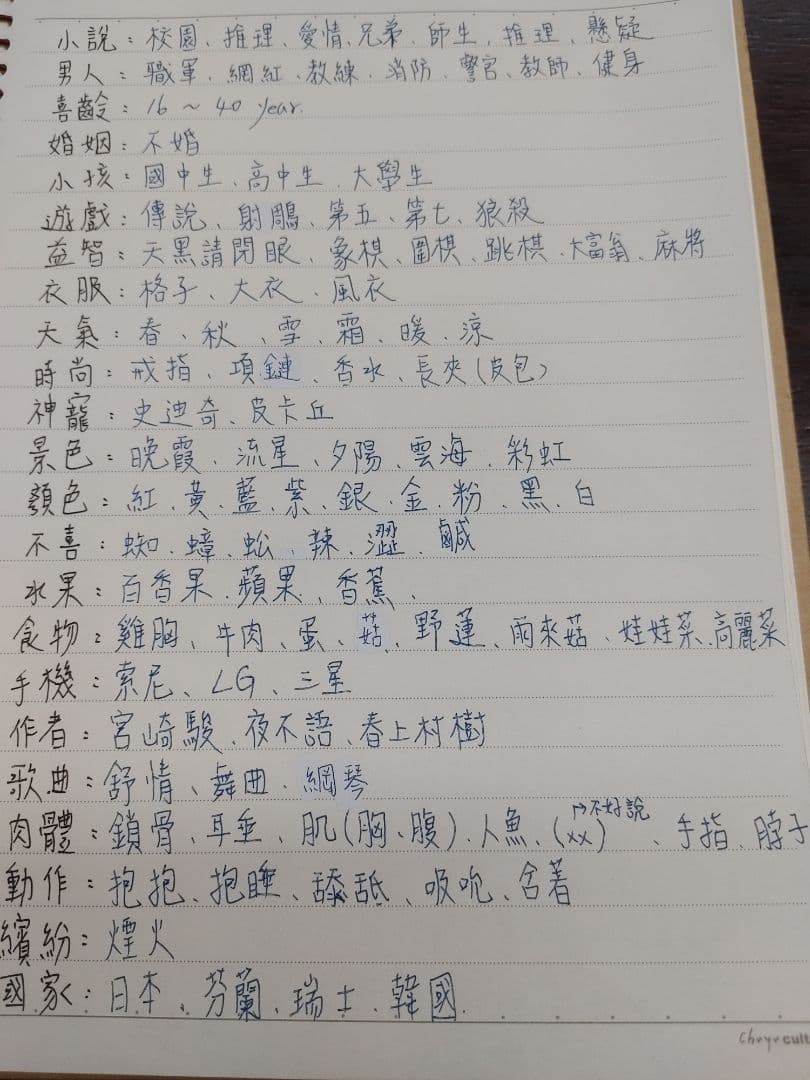 小說：校園、推理、愛情、兄弟、師生、推理、懸疑
男人：職軍、網紅、教練、消防、警官、教師、健身
喜齡：16～40 year.
婚姻：不婚
小孩：國中生、高中生、大學生
遊戲：傳說、射鵰、第五、第七、狼殺
益智：天黑請閉眼、象棋、圍棋、跳棋、大富翁、麻將
衣服：格子、大衣、風衣
天氣：春、秋、雪、霜、暖、涼
時尚：戒指、項鏈、香水、長夾(皮包)
神寵：史迪奇、皮卡丘
景色：晚霞、流星、夕陽、雲海、彩虹
顏色：紅、黃、藍、紫、銀、金、粉、黑、白
不喜：蜘、蟑、蚣、辣、澀、鹹
水果：百香果、蘋果、香蕉、
食物：雞胸、牛肉、蛋、菇、野蓮、雨來菇、娃娃菜、高麗菜
手機：索尼、LG、三星
作者：宮崎駿、夜不語、春上村樹
歌曲：舒情、舞曲、綱琴
肉體：鎖骨、耳垂、肌(胸、腹)、人魚、(xx)→不好說、手指、脖子
動作：抱抱、抱睡、舔舐、吸吮、含著
繽紛：煙火
國家：日本、芬蘭、瑞士、韓國